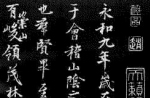 永和九年歲
于會稽山陰
也羣賢畢
有崇山峻領茂林